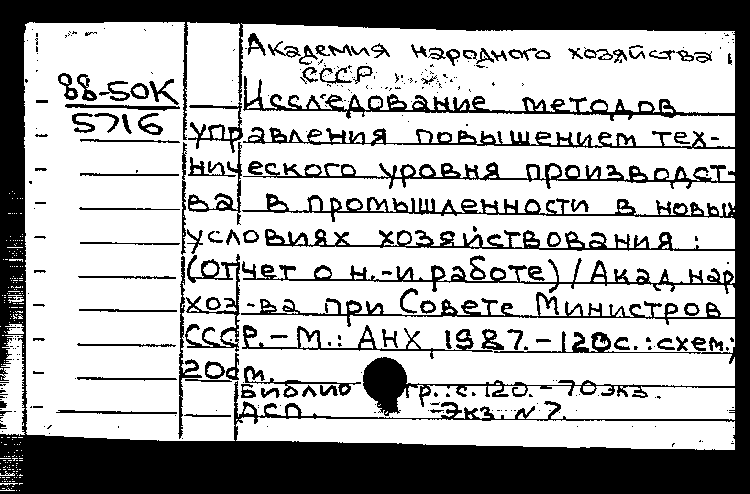 Академия народного хозяйства
СССР
88-50К
5716
Исследование методов
управления повышением тех-
нического уровня производст-
ва в промышленности в новых
условиях хозяйствования :
(Отчет о н.-и. работе) / Акад. нар.
хоз-ва при Совете Министров
СССР. - М.: АНХ, 1987. - 120с. : схем.;
20см.
Библиогр.: с. 120. - 70 экз.
ДСП. Экз. N 7.